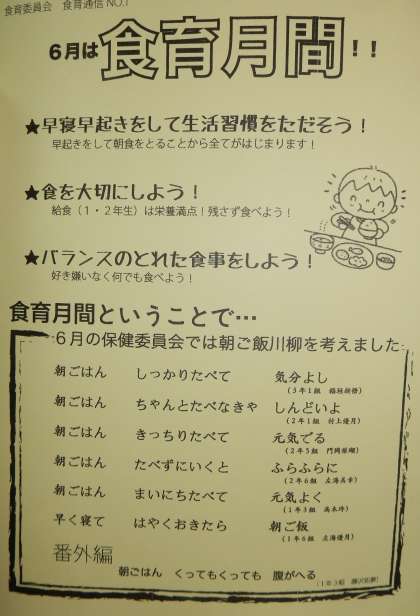 食育委員会　食育通信 NO.1
6月は食育月間！！
★早寝早起きをして生活習慣をただそう！
早起きをして朝食をとることから全てがはじまります！
★食を大切にしよう！
給食（1・2年生）は栄養満点！残さず食べよう！
★バランスのとれた食事をしよう！
好き嫌いなく何でも食べよう！
食育月間ということで…
6月の保健委員会では朝ご飯川柳を考えました
朝ごはん　しっかりたべて　気分よし
（3年1組
朝ごはん　ちゃんとたべなきゃ　しんどいよ
（2年1組　村上優月）
朝ごはん　きっちりたべて　元気でる
（2年5組
朝ごはん　たべずにいくと　ふらふらに
（2年6組
朝ごはん　まいにちたべて　元気よく
（1年3組
早く寝て　はやくおきたら　朝ご飯
（1年6組
番外編
朝ごはん　くってもくっても　腹がへる
（1年3組